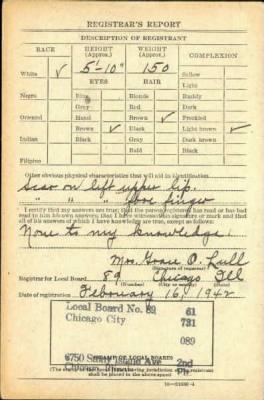 REGISTRAR'S REPORT
DESCRIPTION OF REGISTRANT
RACE
HEIGHT (Approx.)
WEIGHT (Approx.)
COMPLEXION
White ✓
5'-10"
150
Sallow
EYES
HAIR
Light
Negro
Blue
Blonde
Ruddy
Gray
Red
Dark
Oriental
Hazel
Brown
Freckled
Brown ✓
Black ✓
Light brown ✓
Indian
Black
Gray
Dark brown
Bald
Black
Filipino
Other obvious physical characteristics that will aid in identification
Scar on left upper lip.
" " " fore finger
I certify that my answers are true; that the person registered has read or has had
read to him his own answers; that I have witnessed his signature or mark and that
all of his answers of which I have knowledge are true, except as follows:
None to my knowledge.
Mrs. O. Lull
(Signature of registrar)
Registrar for Local Board 89 Chicago Ill
Date of registration February 16, 1942
Local Board No. 89 61
Chicago City 731
089
6750 Island Ave 2nd
(STAMP OF LOCAL BOARD)
Chicago, Illinois
shall be placed in the above space.)